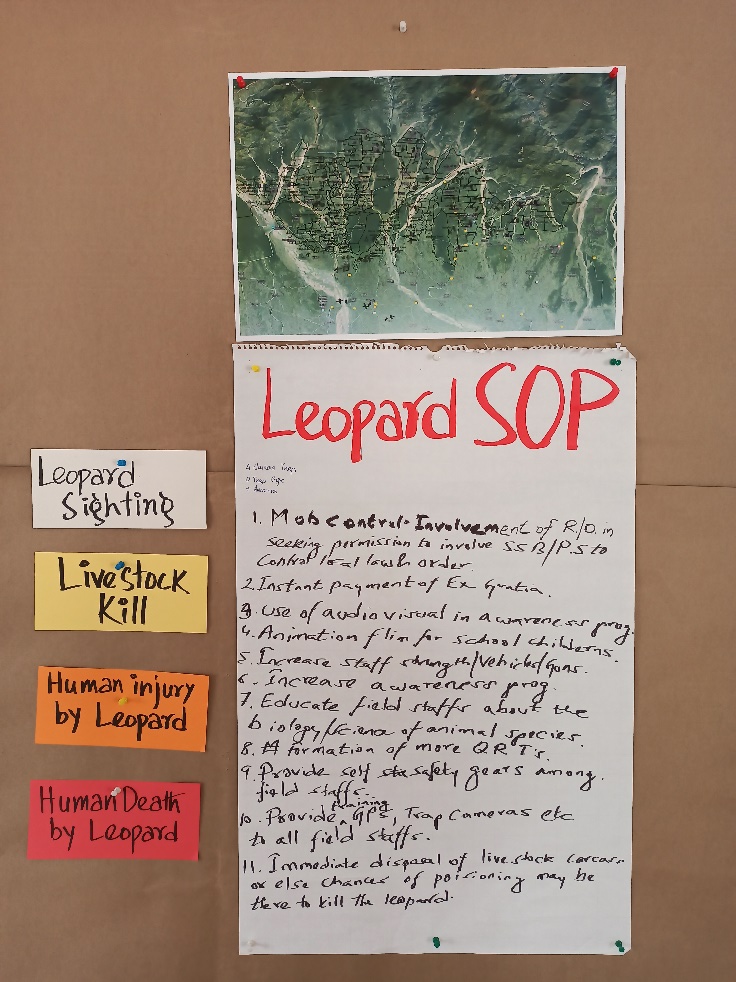 Leopard SOP
1. Mob control- Involvement of R/O. in
seeking permission to involve SSB/P.S to
control local law & order.
2. Instant payment of Ex Gratia.
3. Use of audio visual in awareness prog.
4. Animation flim for school childerns.
5. Increase staff strength/Vehicles/Guns.
6. Increase awareness prog.
7. Educate field staffs about the
biology/science of animal species.
8. formation of more QRT's.
9. Provide self safety gears among
field staffs.
training
10. Provide GPS, Trap Cameras etc
to all field staffs.
11. Immediate disposal of livestock carcass
or else chances of poisioning may be
there to kill the leopard.
Leopard
Sighting
Livestock
Kill
Human injury
by Leopard
Human Death
by Leopard